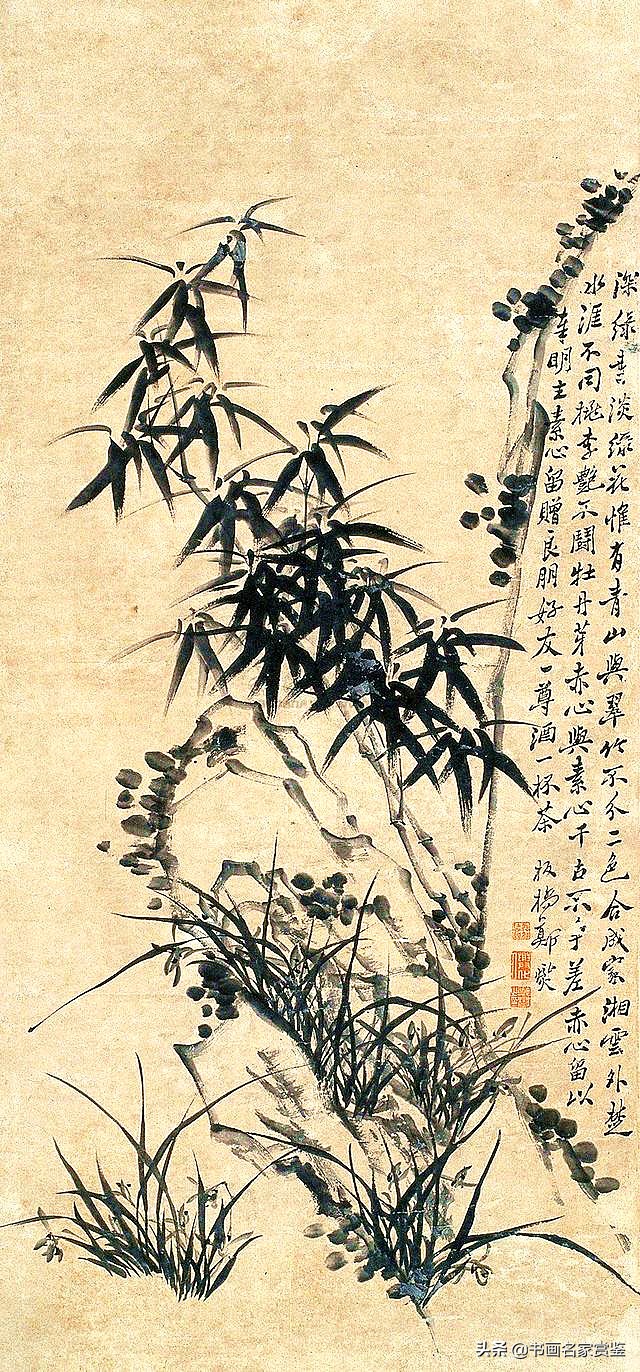 深綠葉淡綠花惟有青山與翠竹不分二色合成家湘雲外楚
水涯不同桃李艷不鬪牡丹芽赤心與素心千古不爭差赤心留以
奉明主素心留贈良朋好友一尊酒一杯茶 板橋鄭燮
头条 @书画名家赏鉴